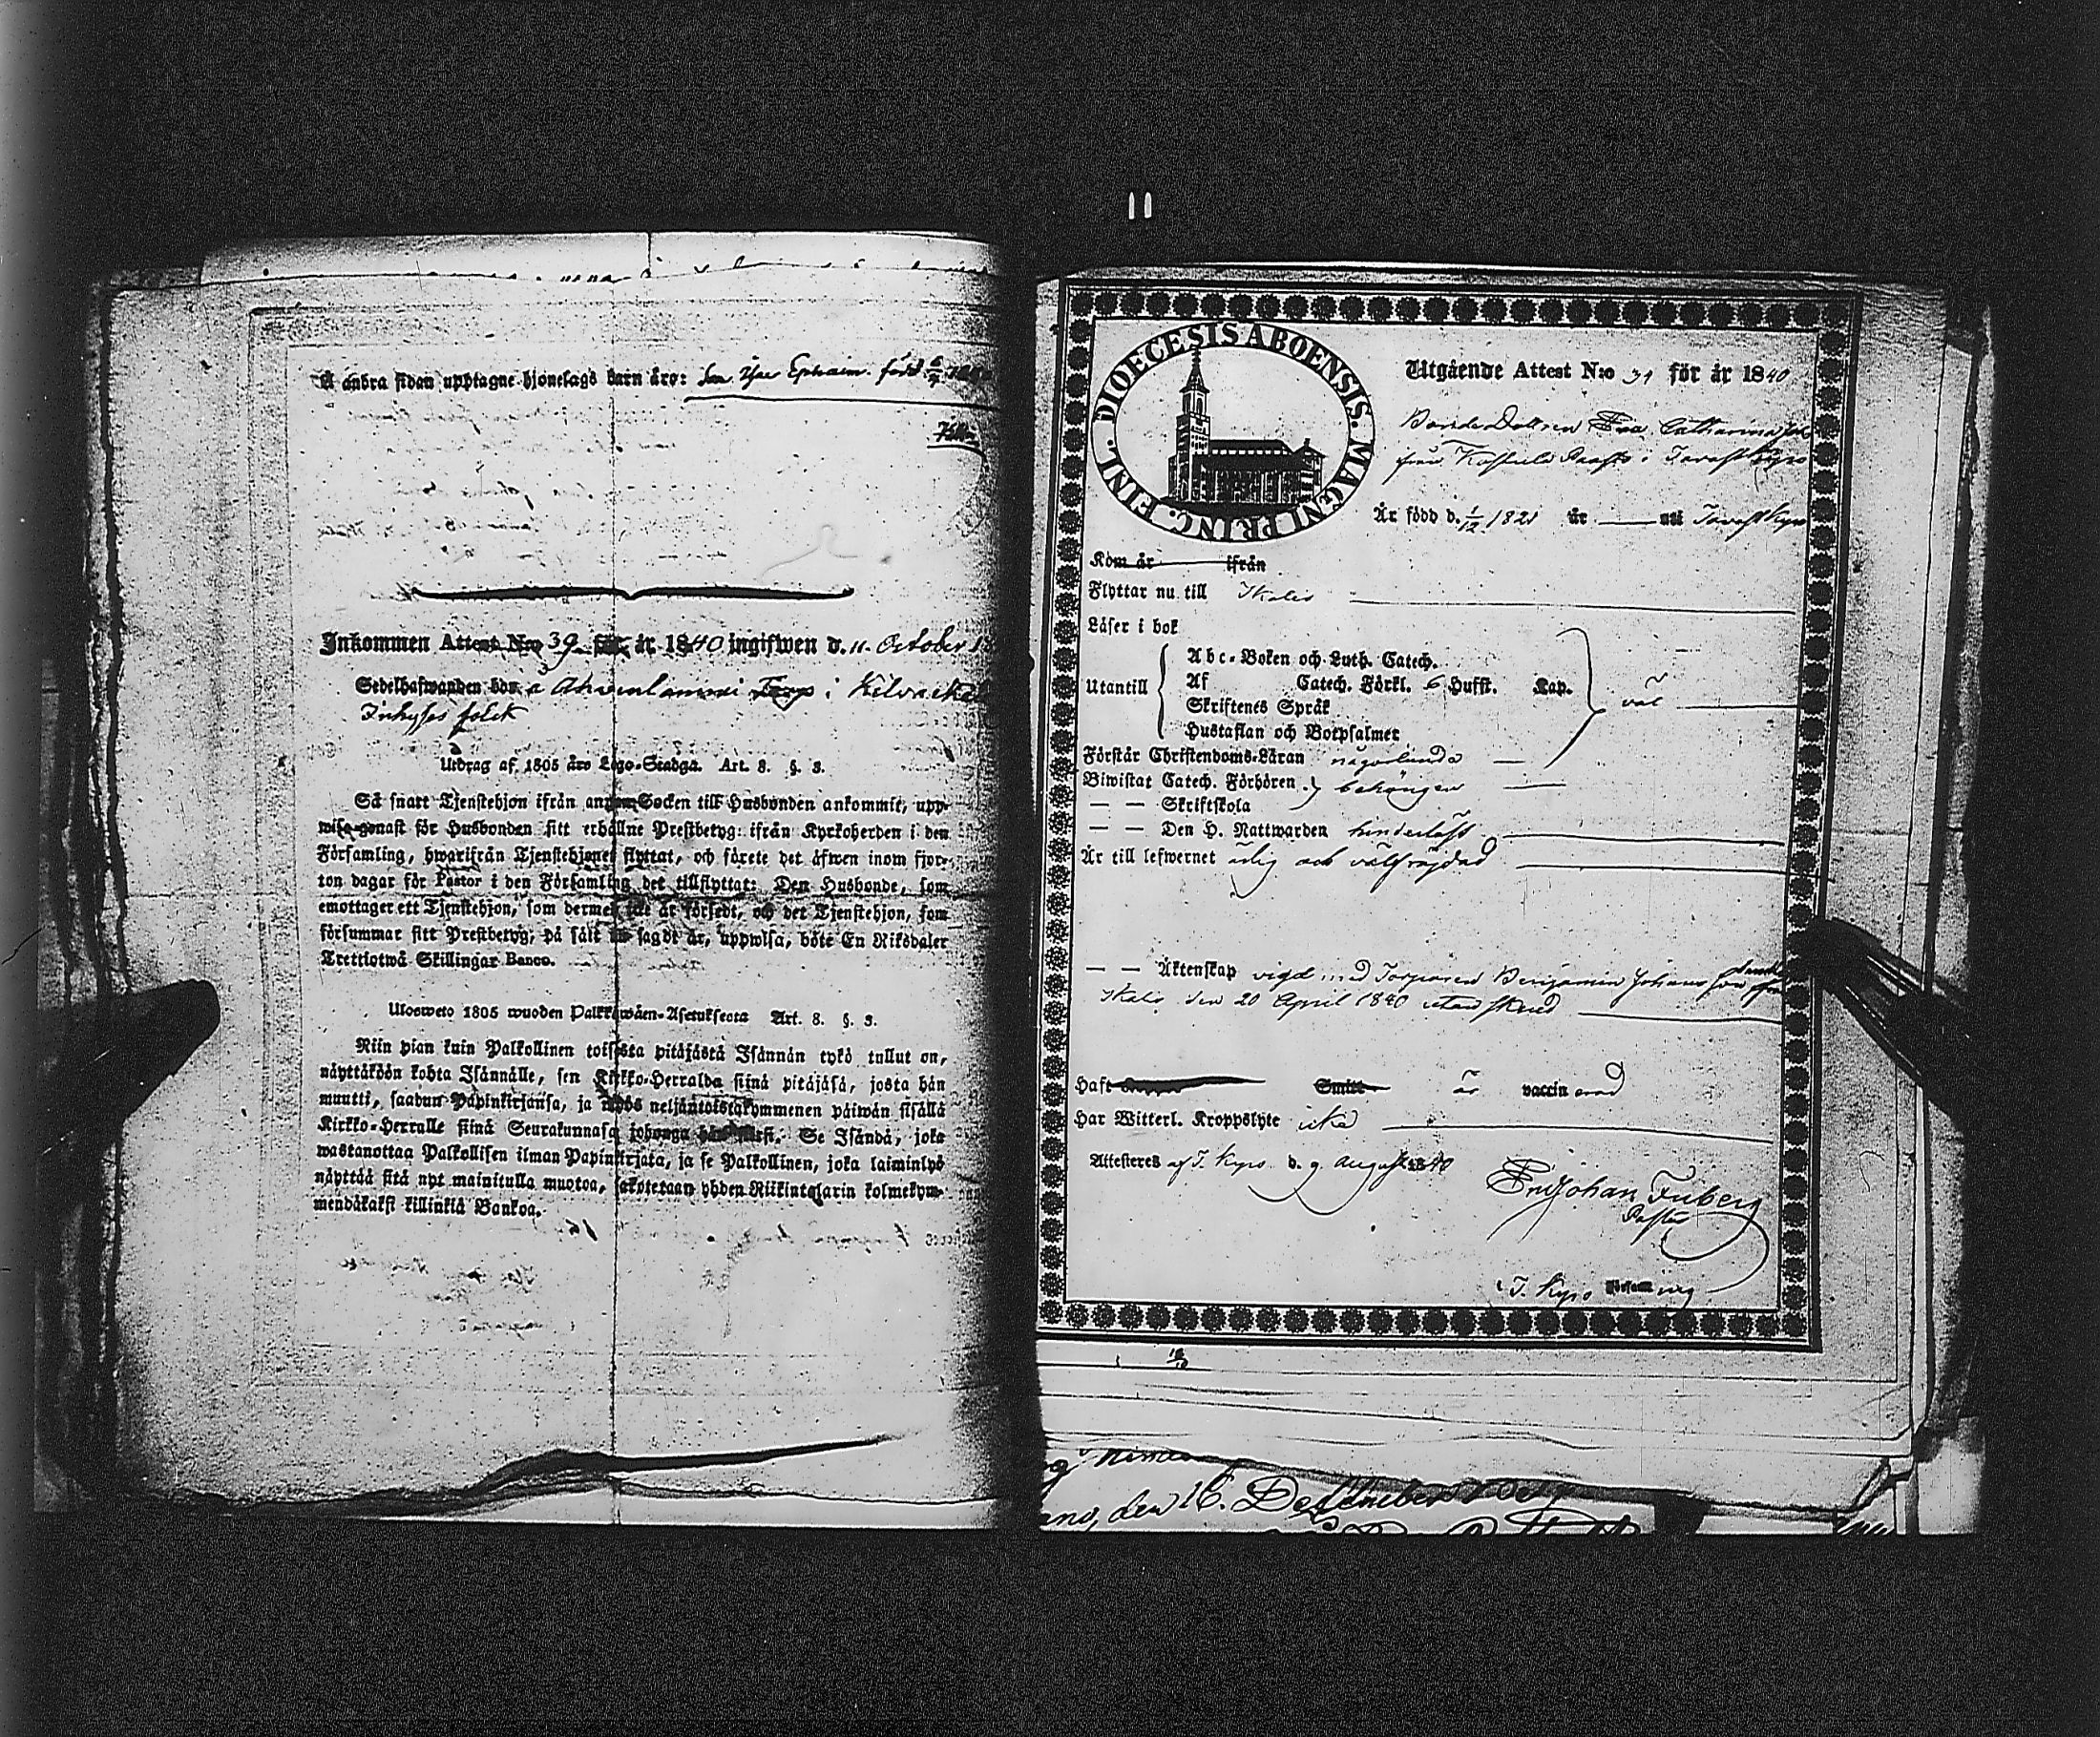 Å andra sidan upptagne hjonelags barn äro: Son Isac Ephraim född 6/7
Inkommen Attest N:o 39 för år 1840 ingifwen d. 11 October 18
Sedelhafwanden bör å Ahvenlammi Torp i Kilvackala
Inhyses folck
Utdrag af 1805 års Lego-Stadga. Art. 8. §. 3.
Så snart Tjenstehjon ifrån annan Socken till Husbonden ankommit, upp-
wise genast för Husbonden sitt erhållne Prestbetyg ifrån Kyrkoherden i den
Församling, hwarifrån Tjenstehjonet flyttat, och förete det äfwen inom fjor-
ton dagar för Pastor i den Församling det tillflyttat: Den Husbonde, som
emottager ett Tjenstehjon, som dermed icke är försedt, och det Tjenstehjon, som
försummar sitt Prestbetyg, på sätt nu sagdt är, uppwisa, böte En Riksdaler
Trettiotwå Skillingar Banco.
Ulosweto 1805 wuoden Palkkawäen-Asetuksesta Art. 8. §. 3.
Niin pian kuin Palkollinen toisesta pitäjästä Isännän tykö tullut on,
näyttäköön kohta Isännälle, sen Kirkko-Herralda siinä pitäjäsä, josta hän
muutti, saadun Papinkirjansa, ja myös neljäntoistakymmenen päiwän sisällä
Kirkko-Herralle siinä Seurakunnasa johonga hän siirsi. Se Isändä, joka
wastanottaa Palkollisen ilman Papinkirjata, ja se Palkollinen, joka laiminlyö
näyttää sitä nyt mainitulla muotoa, sakotetaan yhden Riikintalarin kolmekym-
mendäkaksi killinkiä Bankoa.
DIOECESIS ABOENSIS. MAGNI PRINC. FINL.
Utgående Attest N:o 31 för år 1840
Bonde Dottren Eva Catharina
från Koskela i Tavastkyro
Är född d. 1/12 1821 år — uti Tavastkyro
Kom år ifrån
Flyttar nu till Ikalis
Läser i bok
Utantill
Abc-Boken och Luth. Catech.
Af Catech. Förkl. 6 Hufst. Kap. väl
Skriftenes Språk
Hustaflan och Botpsalmer
Förstår Christendoms-Läran någorlunda
Biwistat Catech. Förhören behörigen
— — Skriftskola
— — Den H. Nattwarden hinderlöst
Är till lefwernet ärlig och välfrägdad
— — Äktenskap vigd med Torparen Benjamin Johansson från
Ikalis den 20 April 1840
Haft Smitt är vaccinerad
Har Witterl. Kroppslyte icke
Attesteras af T. Kyro d. 9 Augusti 1840
Johan Tuberg
Pastor
i T. Kyro Församling
den 16. December